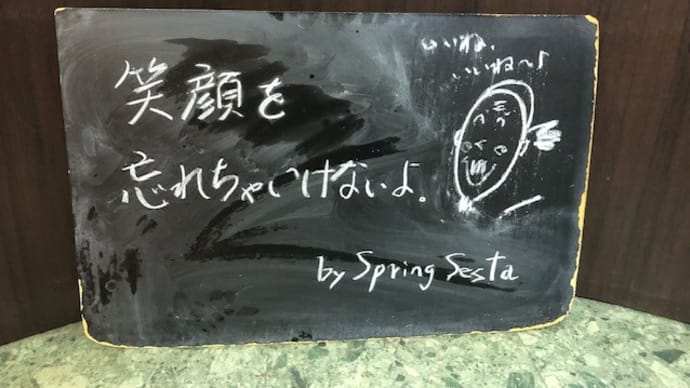 笑顔を
忘れちゃいけないよ。
by Spring Sesta
いいね、
いいね〜♪